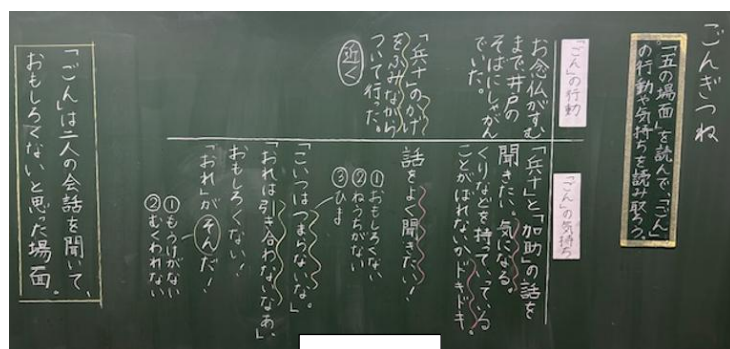 ごんぎつね
「五の場面」を読んで、「ごん」
の行動や気持ちを読み取ろう。
「ごん」の行動
お念仏がすむ
まで、井戸の
そばにしゃがん
でいた。
「兵十」のかげ
をふみながら
ついて行った。
近く
「ごん」の気持ち
「兵十」と「加助」の話を
聞きたい。気になる。
くりなどを持って、っている
ことがばれないかドキドキ。
話をよく聞きたい!
①おもしろくない
②ねうちがない
③ひま
「こいつはつまらないな。」
「おれは引き合わないなあ、
おもしろくない!
「おれ」がそんだ!
①もうけがない
②むくわれない
「ごん」は二人の会話を聞いて、
おもしろくないと思った場面。